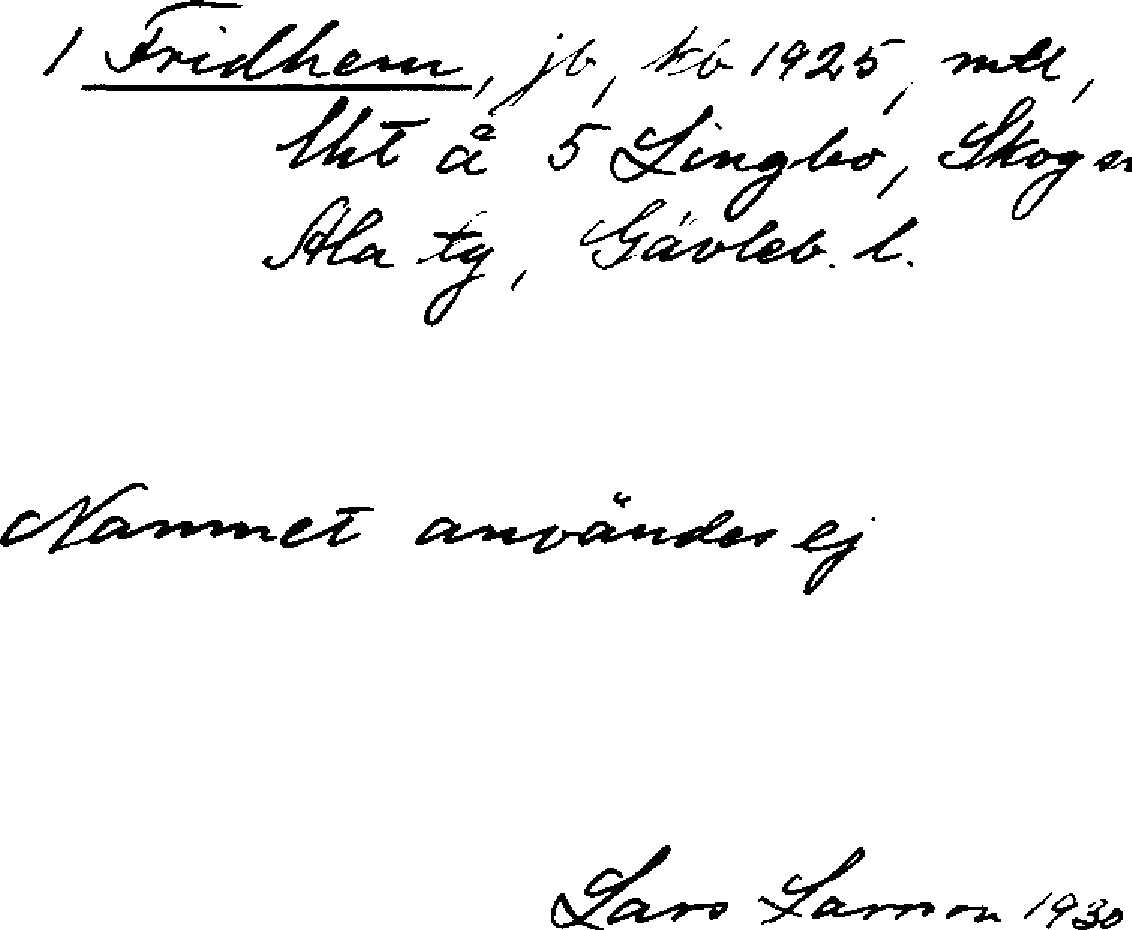 1 Fridhem, jb, kb 1925, mtl,
lht å 5 Lingbo, Skog sn
Ala tg, Gävleb. l.
Namnet användes ej
Lars Larsson 1930